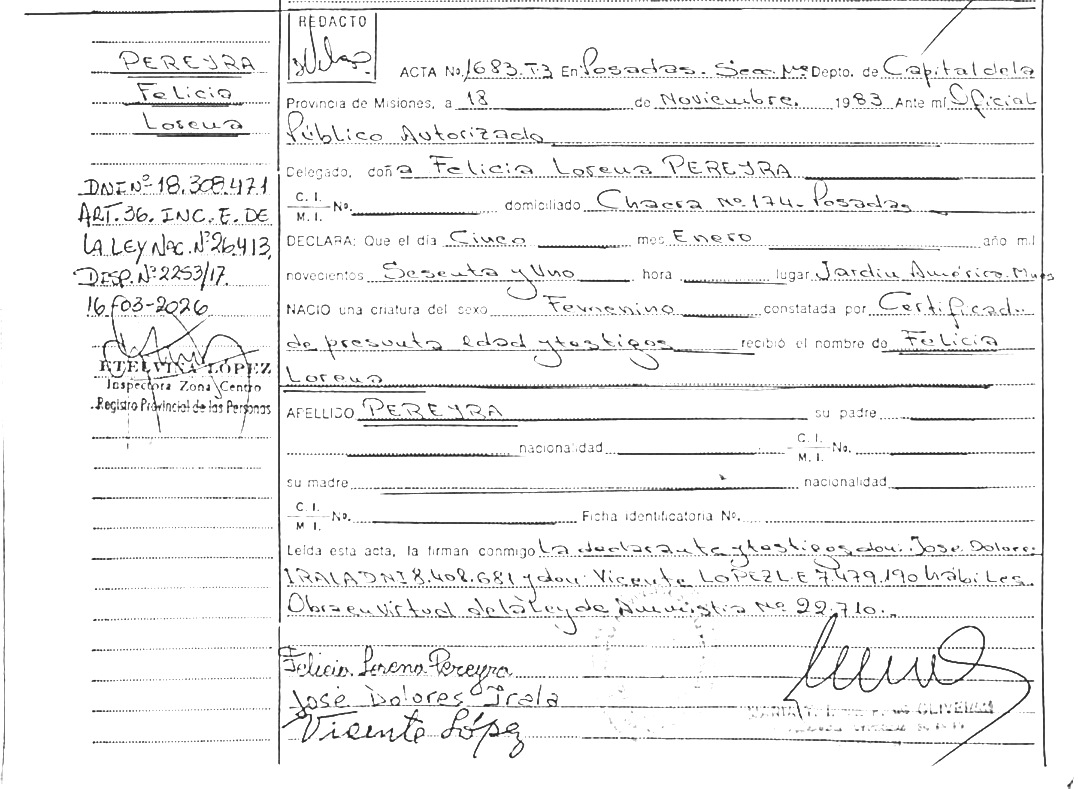 PEREYRA
Felicia
Lorena
DNI Nº 18.308.471
ART. 36. INC. E. DE
LA LEY NAC. Nº 26.413,
DISP. Nº 2253/17.
16-03-2026
ETELVINA LOPEZ
Inspectora Zona Centro
Registro Provincial de las Personas
REDACTO
ACTA No. 1683. T3 En Posadas. Sec. Nº Depto. de Capital de la
Provincia de Misiones, a 18 de Noviembre. 1983 Ante mí Oficial
Público Autorizado
Delegado, doña Felicia Lorena PEREYRA
C. I.
M. I. No. domiciliado Chacra Nº 174- Posadas
DECLARA: Que el día Cinco mes Enero año mil
novecientos Sesenta y Uno hora lugar Jardín América. Mnes
NACIO una criatura del sexo Femenino constatada por Certificado
de presunta edad y testigos recibió el nombre de Felicia
Lorena
APELLIDO PEREYRA su padre
nacionalidad C. I.
M. I. No.
su madre nacionalidad
C. I.
M. I. No. Ficha identificatoria No.
Leída esta acta, la firman conmigo La declarante y testigos don: José Dolores
IRALA DNI 8.408.681 y don: Vicente LOPEZ L.E 7.479.190 hábiles.
Obra en virtud de la Ley de Amnistía Nº 22.710.-
Felicia Lorena Pereyra
José Dolores Irala
Vicente López
DE OLIVEIRA